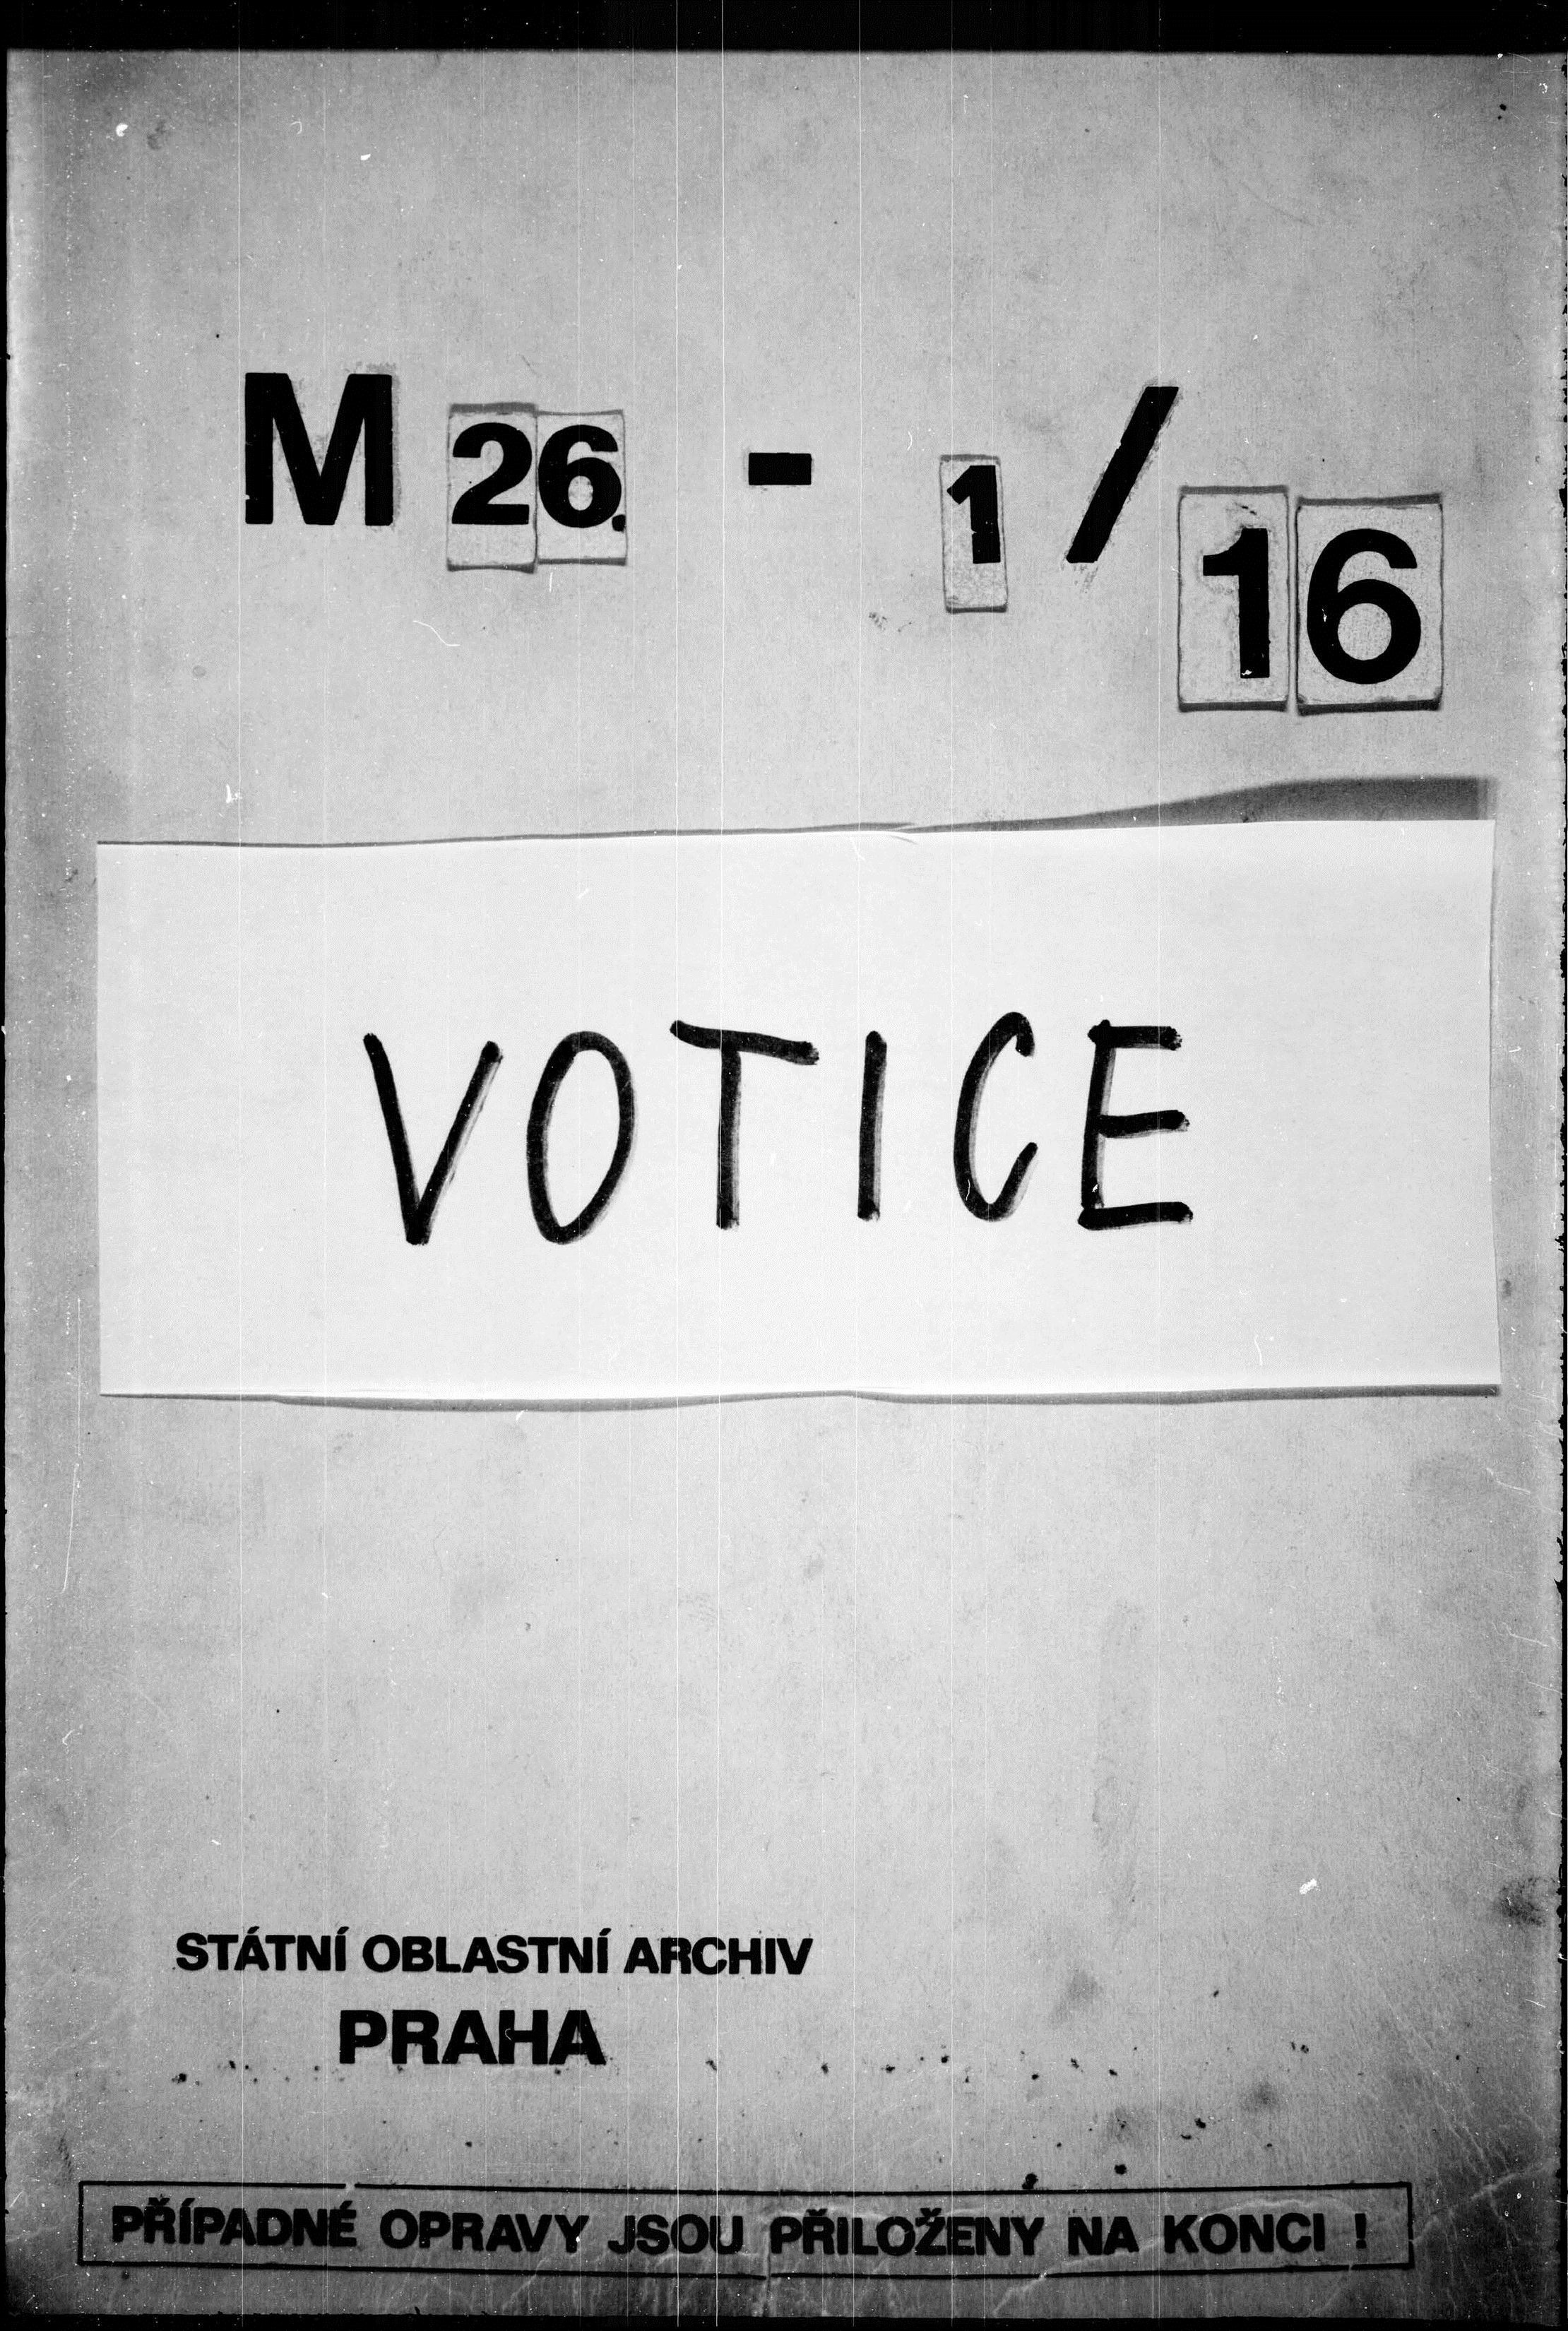 M 26. - 1 / 16
VOTICE
STÁTNÍ OBLASTNÍ ARCHIV
PRAHA
PŘÍPADNÉ OPRAVY JSOU PŘILOŽENY NA KONCI !